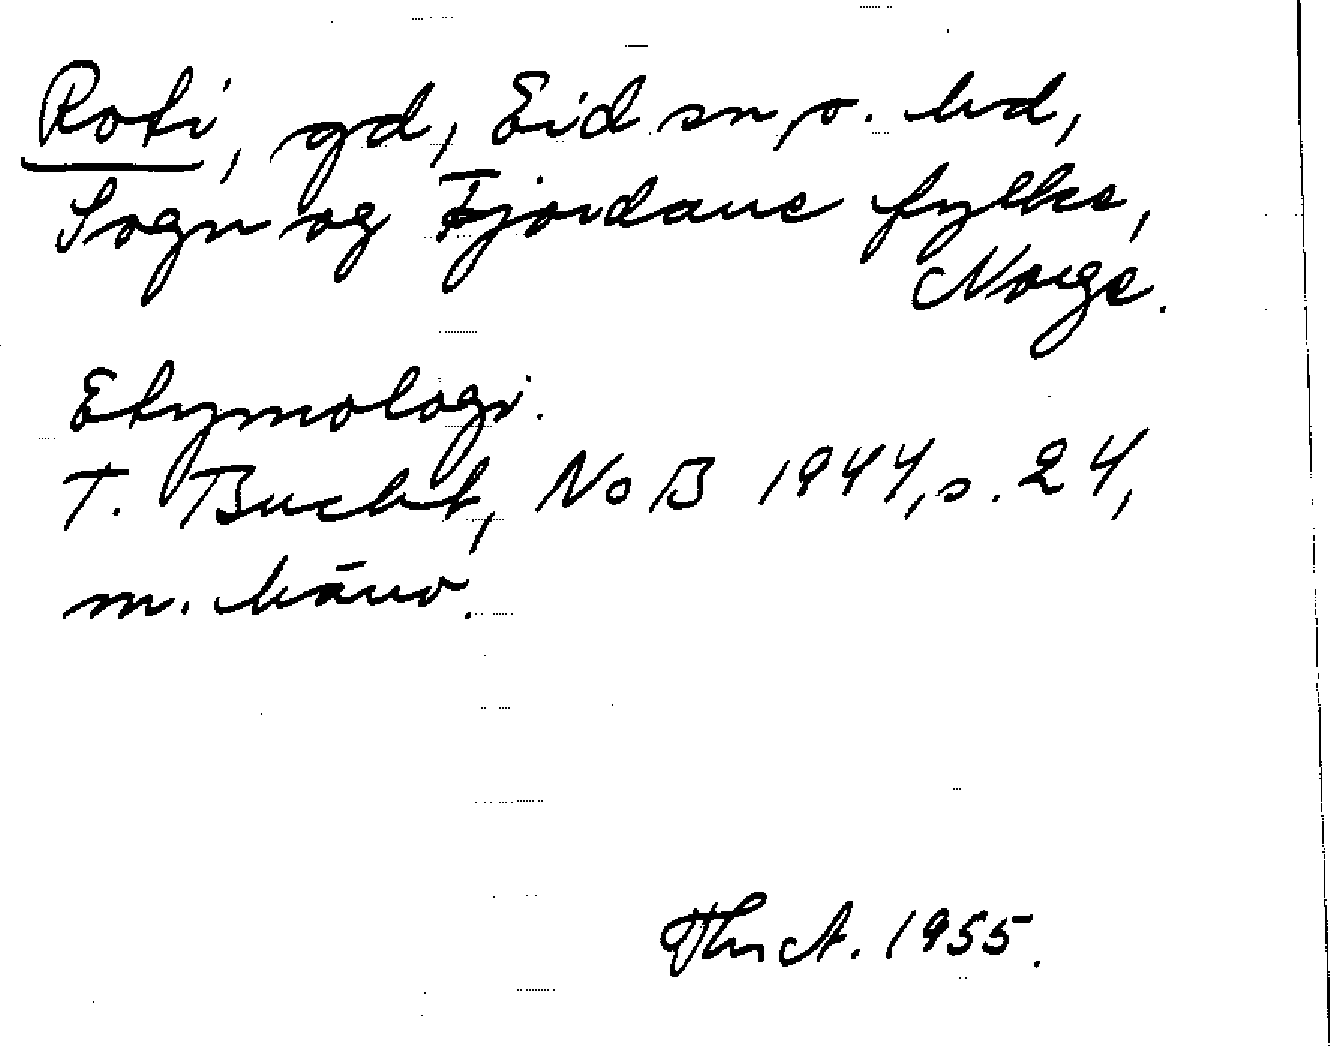 Roti, gd, Eid sn, o. hd,
Sogn og Fjordane fylke,
Norge.
Etymologi.
T. Bucht, NoB 1944, s. 24,
m. hänv.
1955.